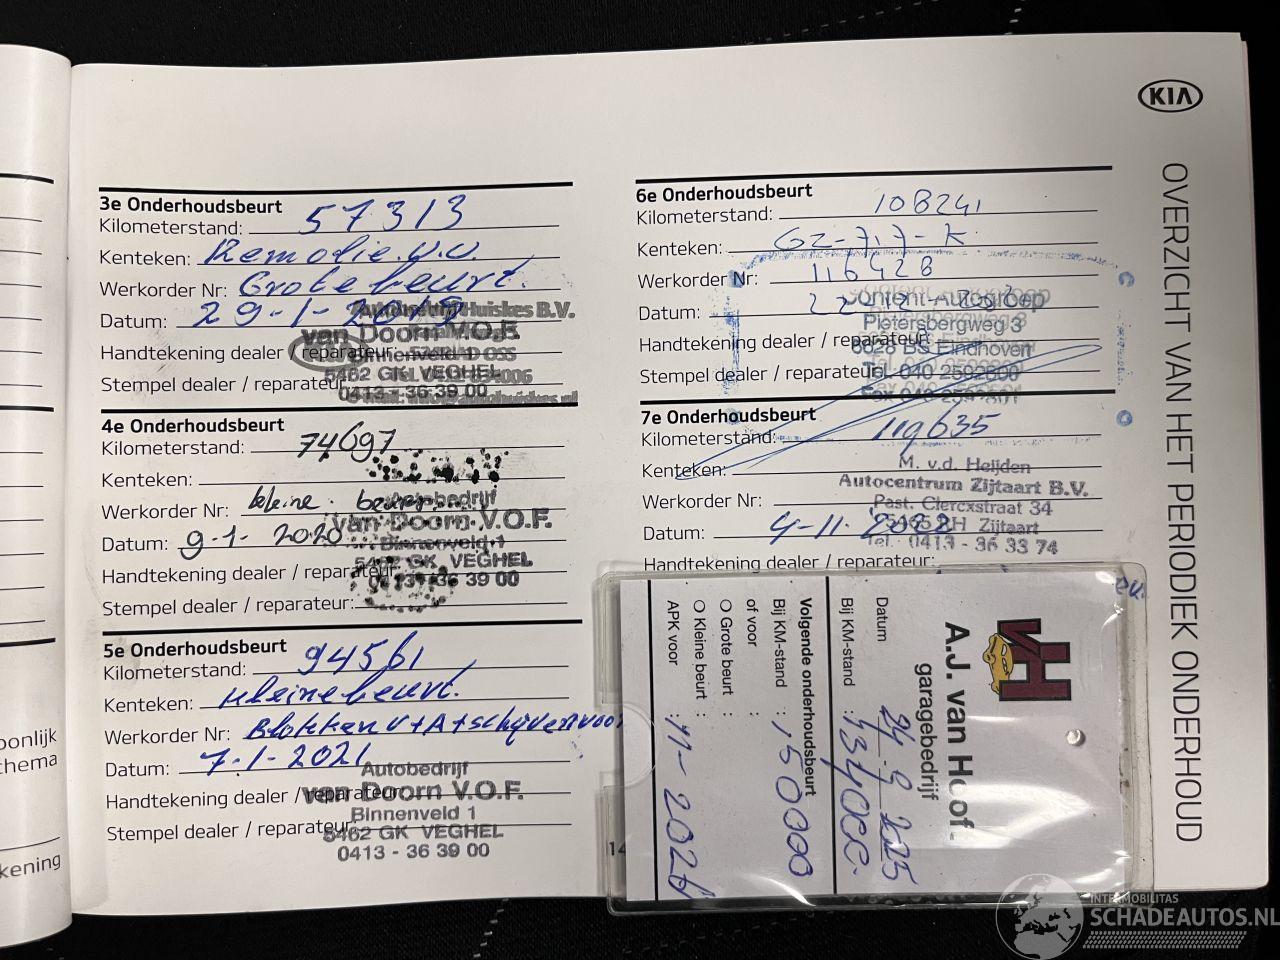 KIA
OVERZICHT VAN HET PERIODIEK ONDERHOUD
3e Onderhoudsbeurt
Kilometerstand: 57313
Kenteken: Remolie.v.v.
Werkorder Nr: Grote beurt.
Datum: 29-1-2019
Handtekening dealer / reparateur:
Stempel dealer / reparateur:
Huiskes B.V.
van Doorn V.O.F.
Binnenveld
5462 GK VEGHEL
0413 - 36 39 00
4e Onderhoudsbeurt
Kilometerstand: 74697
Kenteken:
Werkorder Nr: kleine beurt
Datum: 9-1-2020
Handtekening dealer / reparateur:
Stempel dealer / reparateur:
Autobedrijf
van Doorn V.O.F.
Binnenveld 1
5462 GK VEGHEL
0413 - 36 39 00
5e Onderhoudsbeurt
Kilometerstand: 94561
Kenteken: kleine beurt.
Werkorder Nr: Blokken V+A+schijven voor
Datum: 7-1-2021
Handtekening dealer / reparateur:
Stempel dealer / reparateur:
Autobedrijf
van Doorn V.O.F.
Binnenveld 1
5462 GK VEGHEL
0413 - 36 39 00
6e Onderhoudsbeurt
Kilometerstand: 108241
Kenteken: GZ-717-K
Werkorder Nr: 116428
Datum:
Handtekening dealer / reparateur:
Stempel dealer / reparateur:
Content Autogroep
Pietersbergweg 3
5628 BS Eindhoven
Tel. 040 2592600
7e Onderhoudsbeurt
Kilometerstand: 119635
Kenteken:
Werkorder Nr:
Datum: 4-11-2022
Handtekening dealer / reparateur:
M. v.d. Heijden
Autocentrum Zijtaart B.V.
Past. Clercxstraat 34
Zijtaart
Tel.: 0413 - 36 33 74
A.J. van Hoof
garagebedrijf
vH
Datum : 24-9-2025
Bij KM-stand : 134000.
Volgende onderhoudsbeurt
Bij KM-stand : 150000
of voor :
Grote beurt :
Kleine beurt :
APK voor : 11-2026
14
oonlijk
hema
kening
INTERMOBILITAS
SCHADEAUTOS.NL